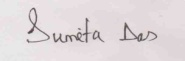 Sumita Das